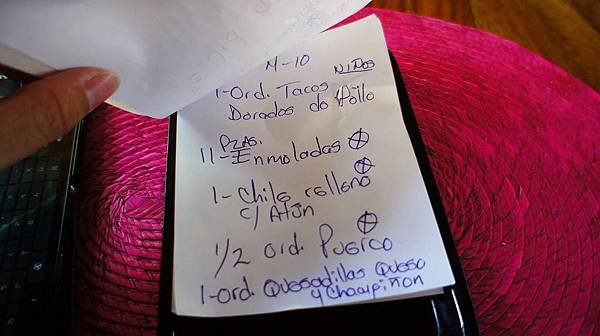 M-10
NIÑOS
1-Ord. Tacos
Dorados do Pollo
PZAS.
11-Enmoladas
1-Chile relleno
c/ Atún
1/2 ord. Puerco
1-ord. Quesadillas Queso
y Champiñon